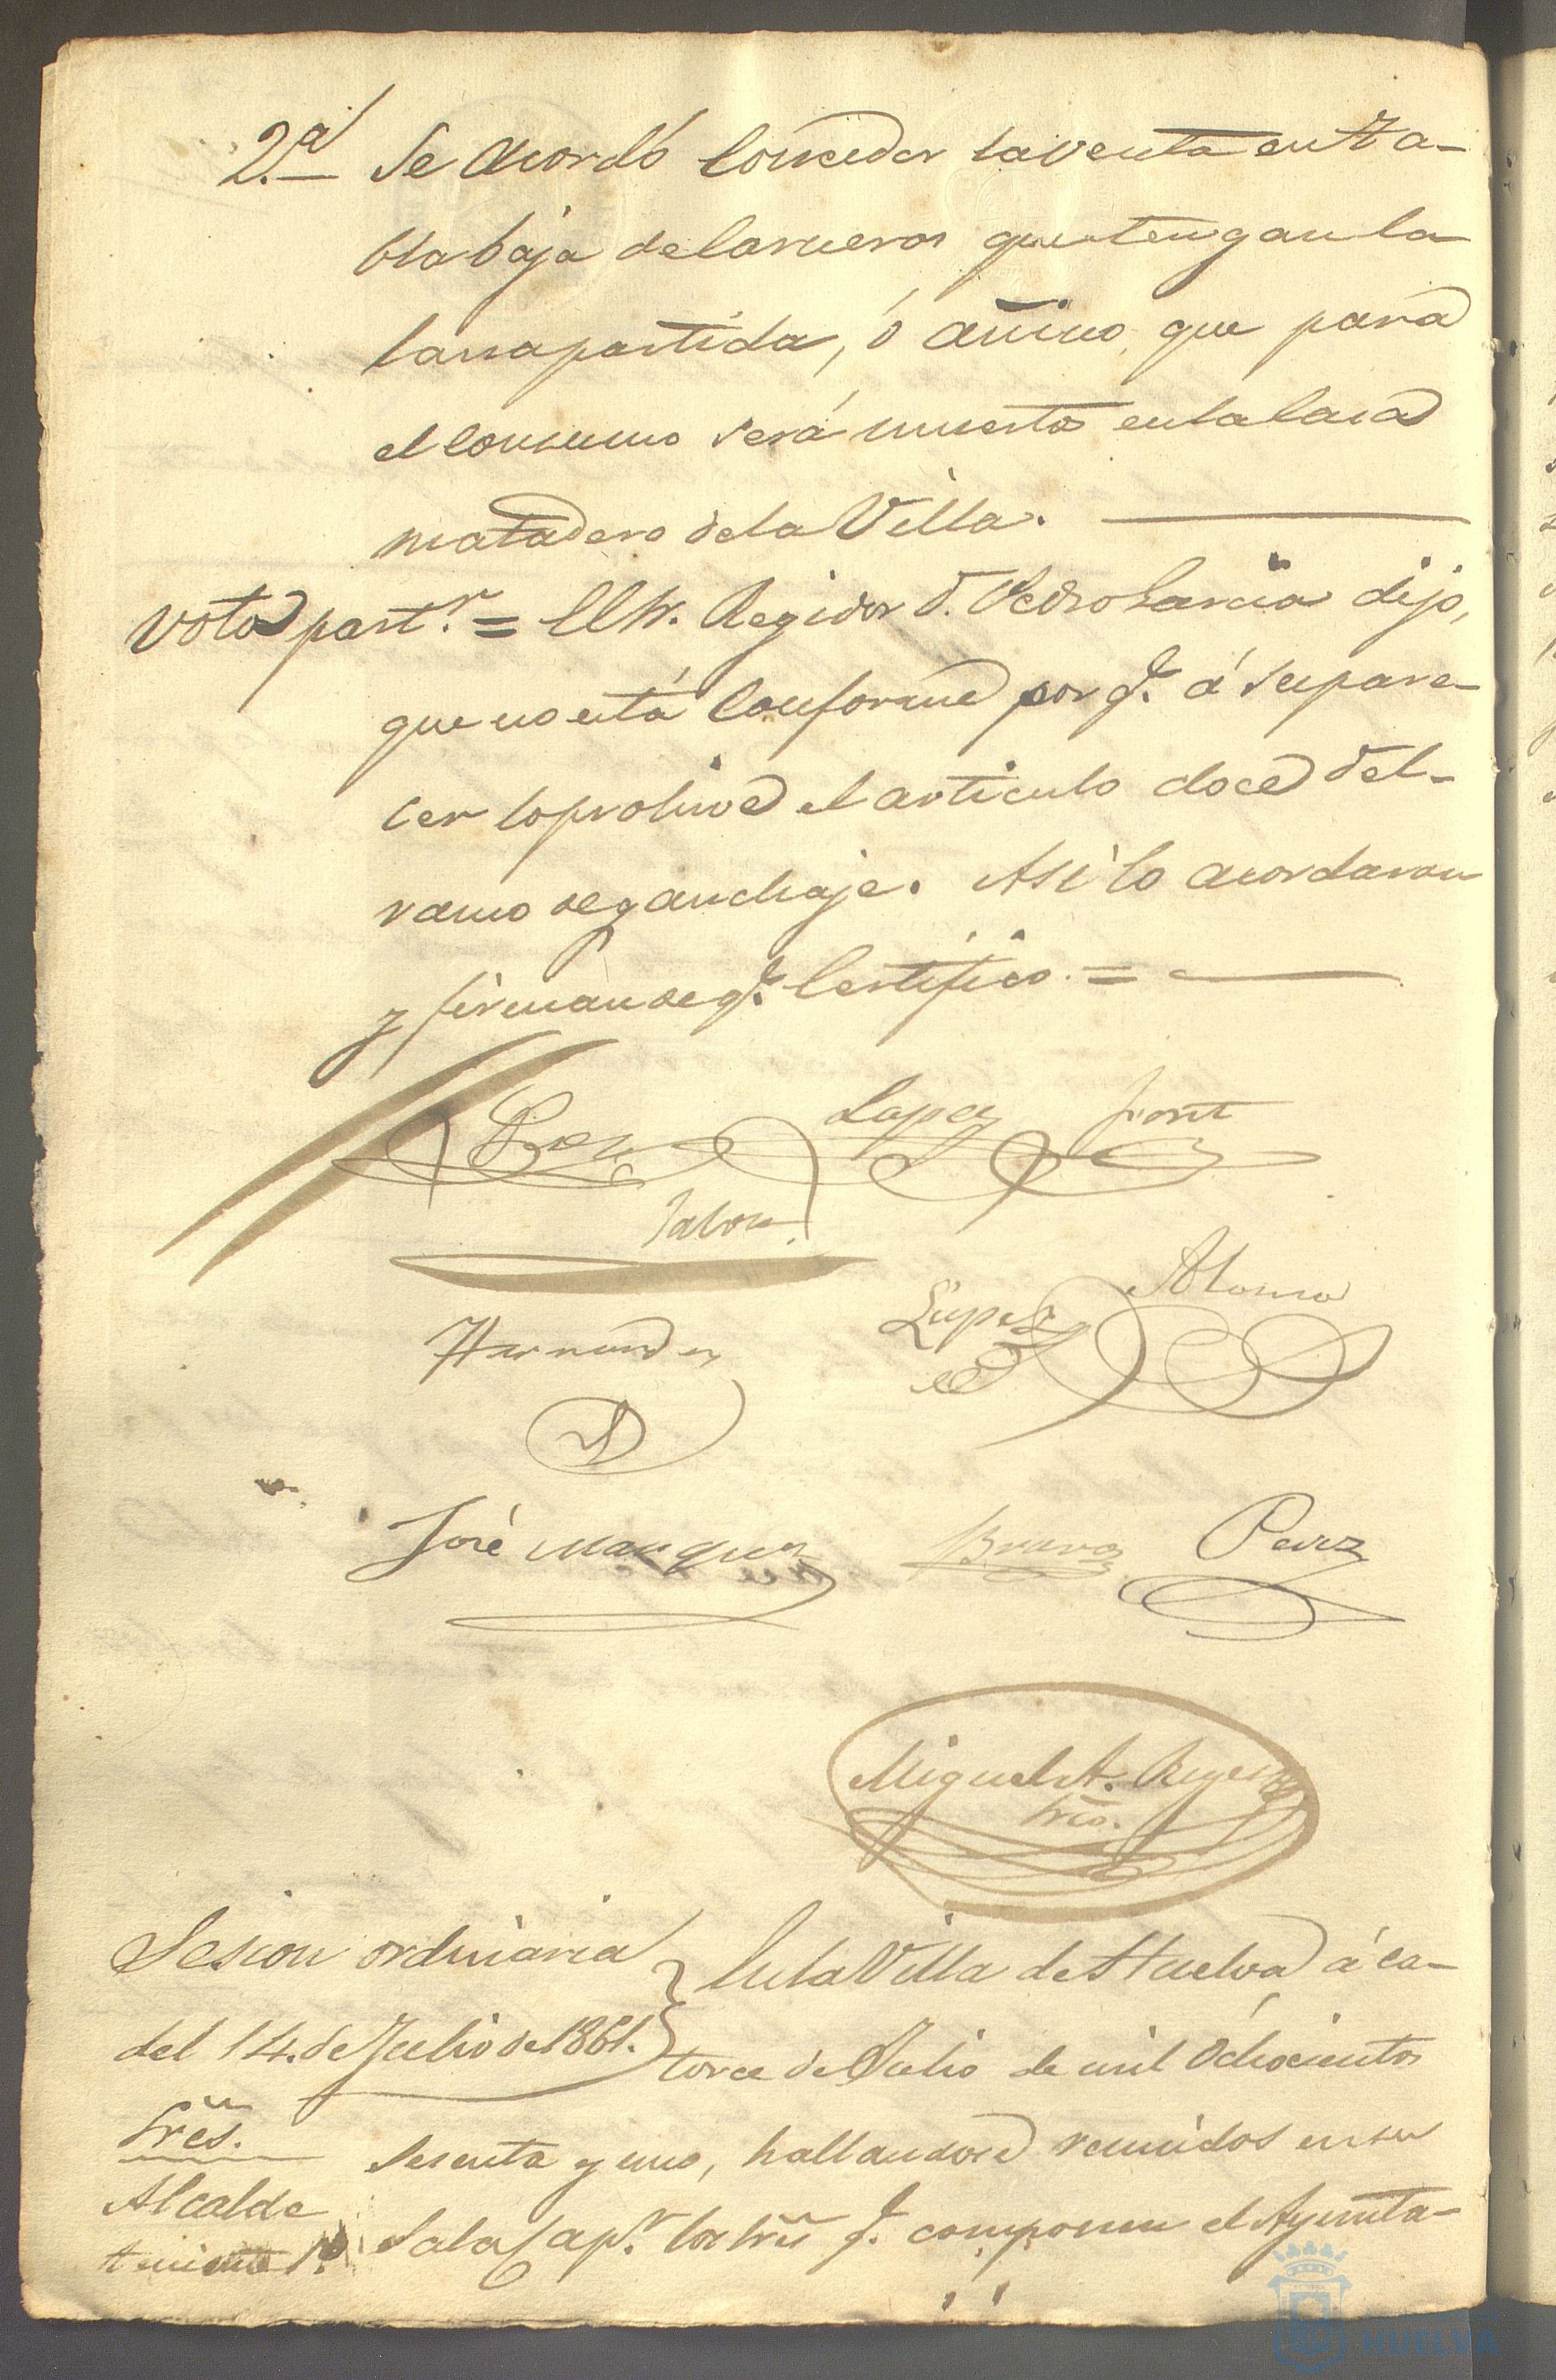 2.ª Se acordó conceder la venta en Ta-
bla baja de las reses que tengan la
lana partida, ó añino, que para
el consumo será muerto en la Casa
matadero de la Villa.
Voto part.r = El Sr. Regidor D. Pedro Garcia dijo,
que no está conforme por q.e á su pare-
cer lo prohive el articulo doce del
ramo de ganchaje. Asi lo acordaron
y firman de q.e Certifico =
Lopez Font
Jalon
Hernandez Lopez Alonso
José Marquez Bravo Perez
Miguel A.
Srio.
Sesion ordinaria
del 14. de Julio de 1861.
Sres.
Alcalde
teniente 1º.
En la Villa de Huelva á ca-
torce de Julio de mil ochocientos
sesenta y uno, hallandose reunidos en su
Sala Cap.r los Sres q.e componen el Ayunta-
HUELVA